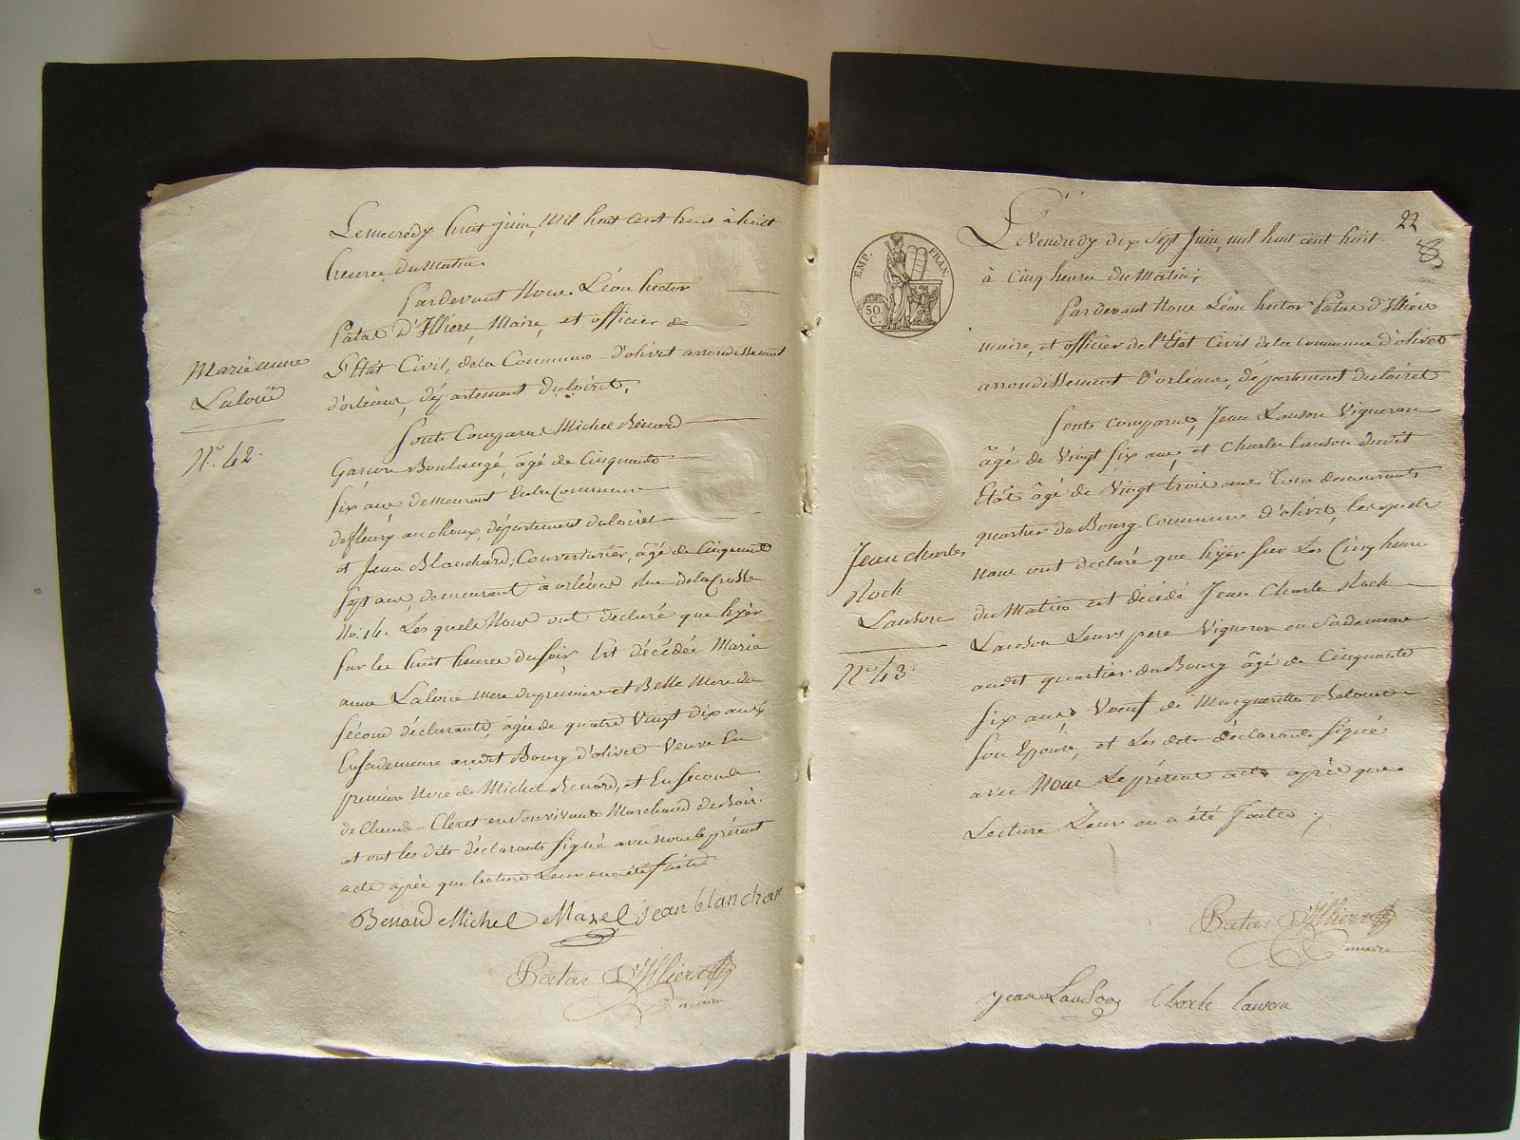 Marie anne
Laloüé
N.º 42.
Le mecredy huit juin, mil huit cent huit à huit
heures du Matin.
Pardevant Nous Léon hector
Patas D'Illiers, Maire, et officier de
L'Etat Civil, de la Commune d'olivet arrondissement
d'orléans, département du loiret,
Sont Comparus Michel Bénard
Garçon Boulangé, âgé de Cinquante
Six ans demeurant en la Commune
de fleury aux choux, département du loiret
et Jean Blanchard, Couverturier, âgé de Cinquante
Sept ans, demeurant à orléans Rue de la
No. 14. Lesquels Nous ont déclaré que hyèr
sur les huit heures du soir Est décédée Marie
anne Laloüé mere du premier et Belle Mere du
Sécond déclarants, âgée de quatre Vingt dix ans,
En sa demeure audit Bourg d'olivet Veuve En
premiere Noce de Michel Bénard, et En seconde
de Claude Cleret en son vivant Marchand de Bois.
et ont les dits déclarants signé avec nous le présent
acte après que lecture Leur en a été faite
Benard Michel Maxel jean blanchar
Patas D'Illiers
maire
22
Le Vendredy dix Sept Juin, mil huit cent huit
à Cinq heures du Matin;
EMP. FRAN.
50
C.
Pardevant Nous Léon hector Patas d'Illiers
maire, et officier de l'Etat Civil de la Commune d'olivet
arrondissement D'orléans, département du loiret
Sont comparus, Jean Lauson Vigneron
âgé de Vingt six ans, et Charles Lauson dudit
Etât âgé de Vingt trois ans Tous demeurants
quartier du Bourg Commune d'olivet, lesquels
Nous ont declaré que hyèr sur Les Cinq heures
du Matin est décédé Jean Charles Rock
Lauson Leurs pere Vigneron en Sa demeure
audit quartier du Bourg âgé de Cinquante
six ans, Voeuf de Margueritte
son Epouse, et Les dits déclarants signés
avec Nous Le présent acte après que
Lecture Leurs en a été faite;
Jean charles
Rock
Lauson
N.º 43.
Patas D'Illiers
maire
jean Lauson Charle lauson